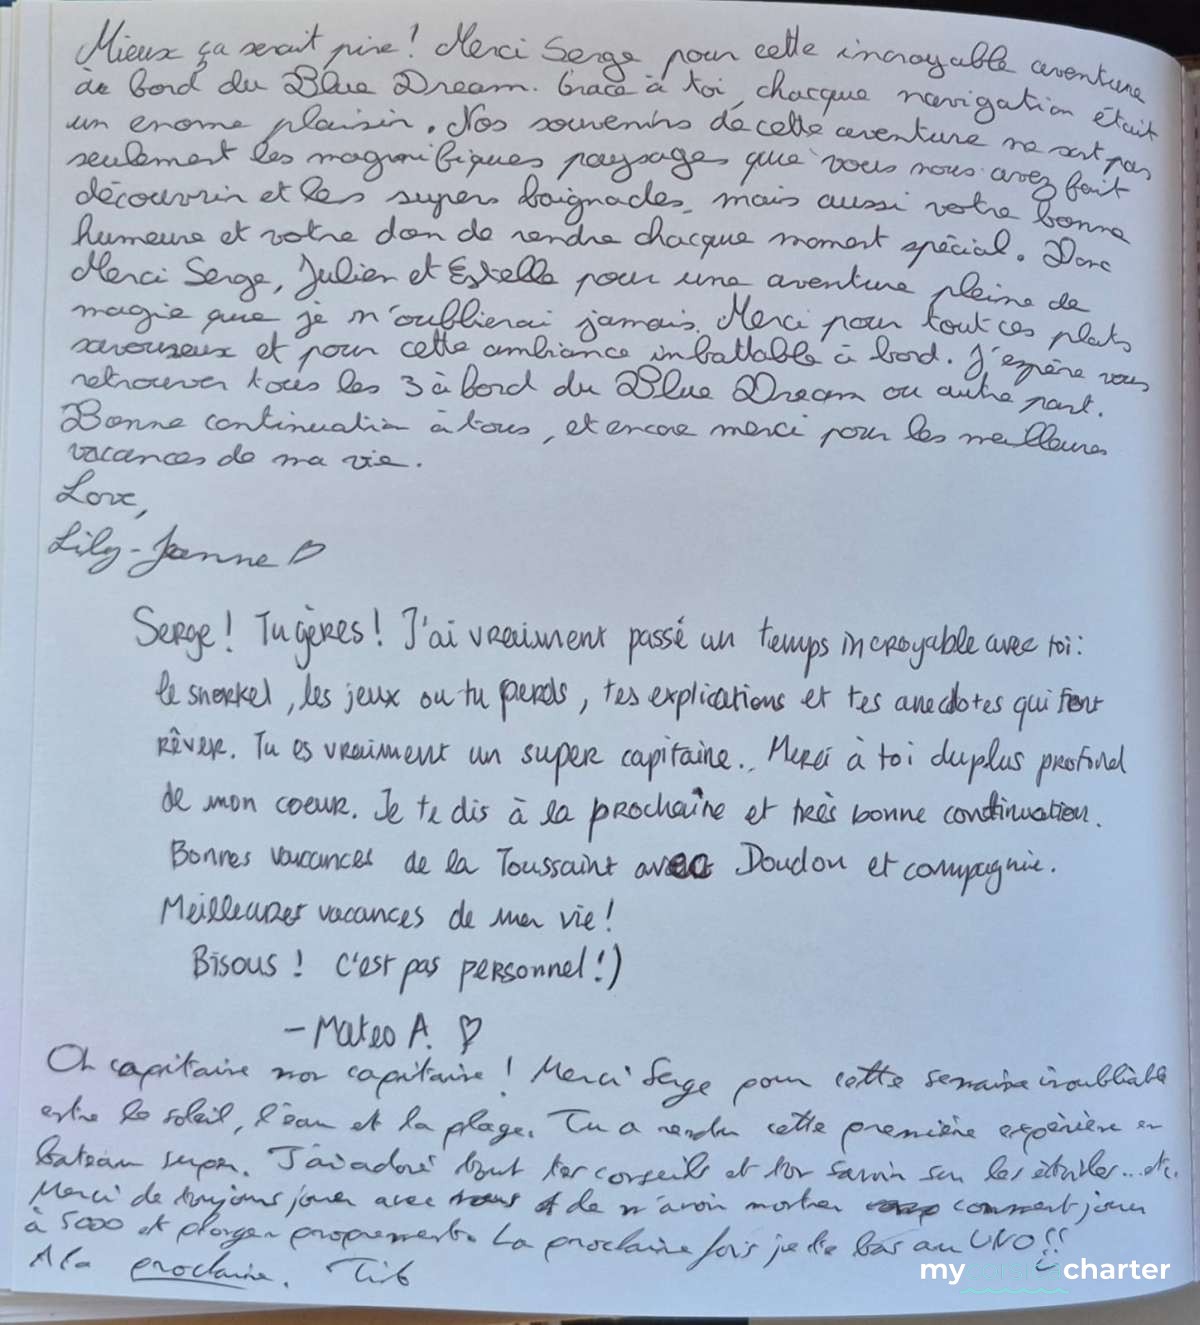 Mieux ça serait pire ! Merci Serge pour cette incroyable aventure
à bord du Blue Dream. Grace à toi, chacque navigation était
un enorme plaisir. Nos souvenirs de cette aventure ne sont pas
seulement les magnifiques paysages que vous nous avez fait
découvrir et les supers baignades, mais aussi votre bonne
humeure et votre don de rendre chacque moment spécial. Donc
Merci Serge, Julien et Estelle pour une aventure pleine de
magie que je n'oublierai jamais. Merci pour tout ces plats
savoureux et pour cette ambiance imbattable à bord. J'espère vous
retrouver tous les 3 à bord du Blue Dream ou autre part.
Bonne continuation à tous, et encore merci pour les meilleures
vacances de ma vie.
Love,
Lily-Jeanne ♡
Serge ! Tu gères ! J'ai vraiment passé un temps incroyable avec toi :
le snorkel, les jeux ou tu perds, tes explications et tes anecdotes qui font
rêver. Tu es vraiment un super capitaine.. Merci à toi du plus profond
de mon coeur. Je te dis à la prochaine et très bonne continuation.
Bonnes vacances de la Toussaint avec Doudou et compagnie.
Meilleures vacances de ma vie !
Bisous ! C'est pas personnel !)
– Mateo A. ♡
Oh capitaine mon capitaine ! Merci Serge pour cette semaine inoubliable
entre le soleil, l'eau et la plage. Tu a rendu cette première expérière en
bateau super. J'ai adoré tout tes conseils et ton savoir sur les étoiles... etc.
Merci de toujours jouer avec nous et de m'avoir montrer comment jouer
à 5000 et plonger proprement. La prochaine fois je te bas au UNO !!
A la prochaine. Tib
my charter